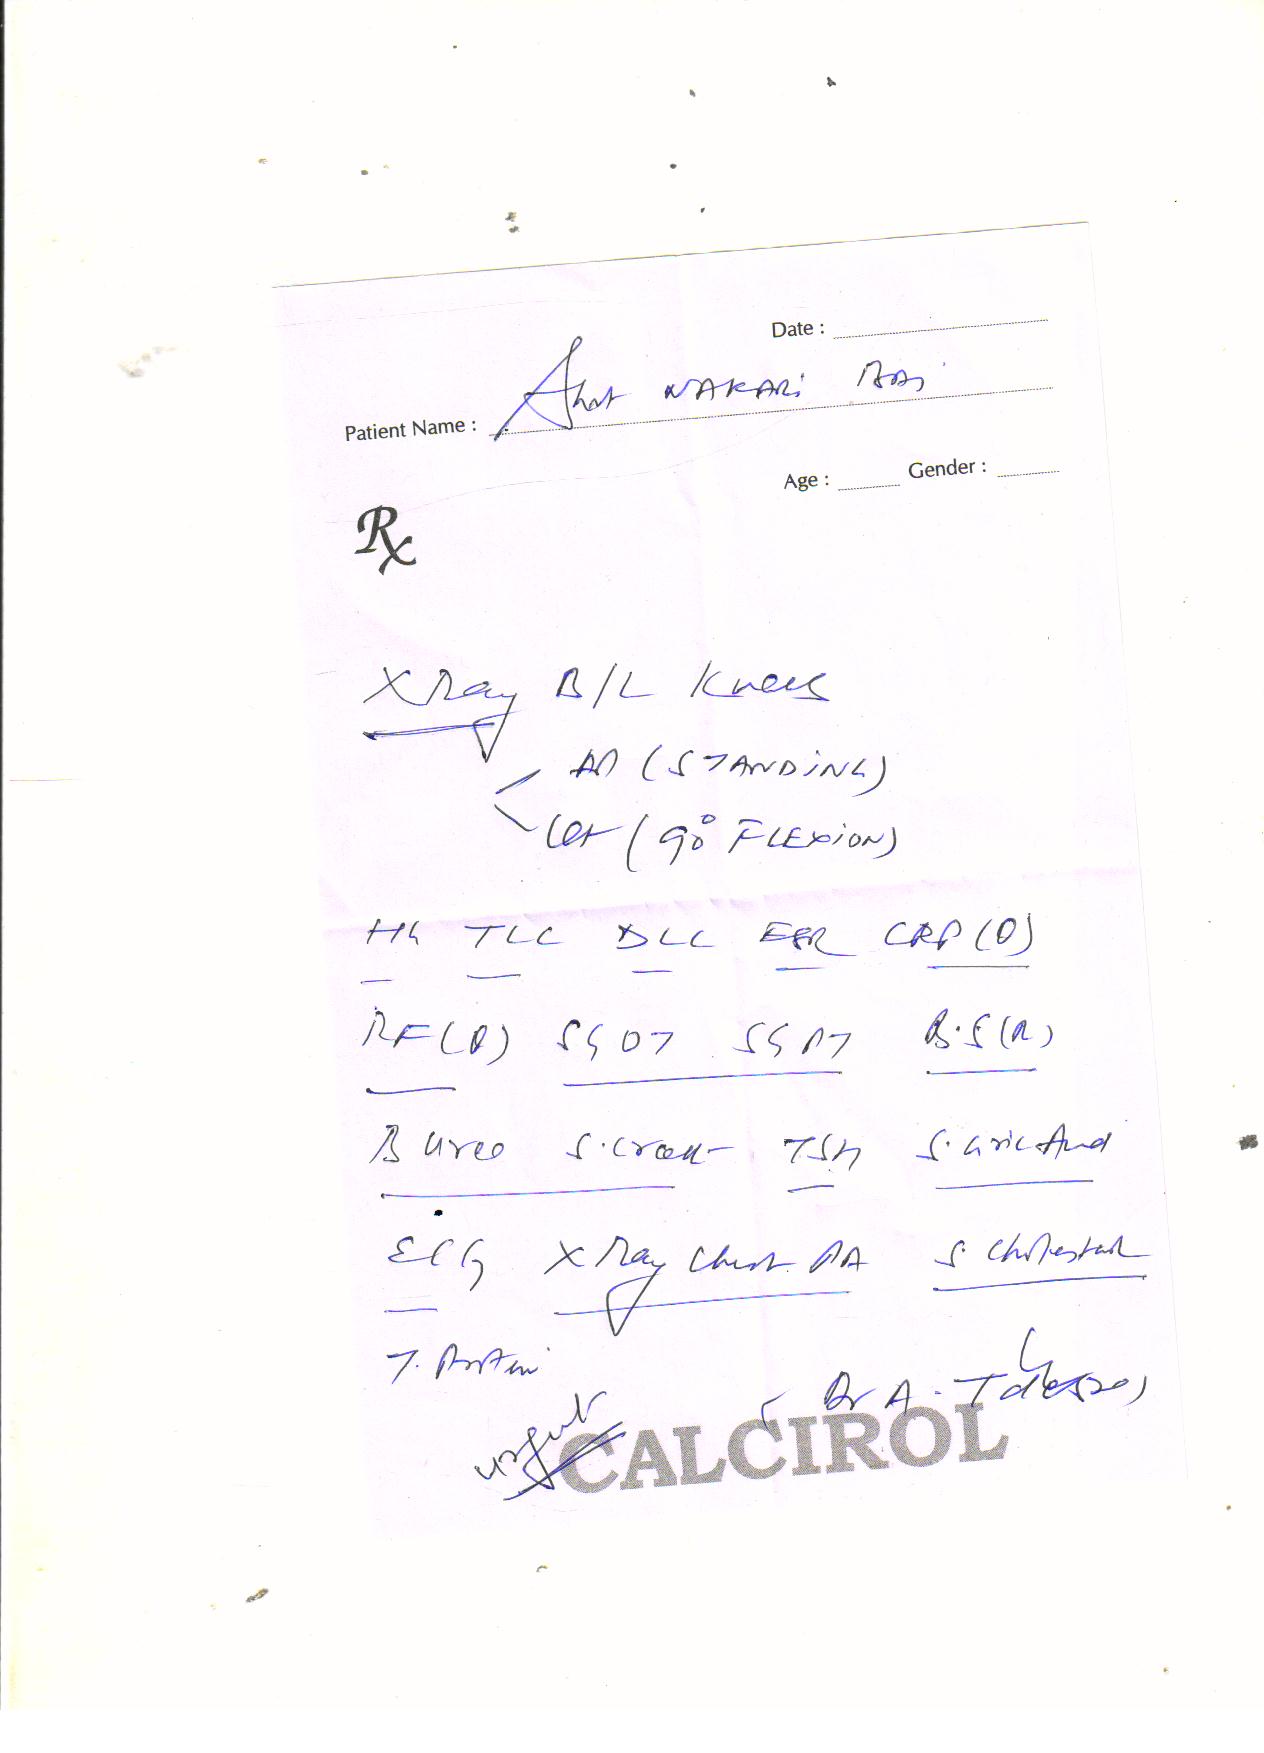 Date :
Patient Name : NAKARi
Age : Gender :
Rx
X Ray B/L Knees
AP (STANDiNG)
Lat (90° FLEXiON)
Hb TLC DLC ESR CRP(Q)
RF(Q) SGOT SGPT B.S(R)
B Urea S. Creat TSH S. Uric Acid
ECG X Ray Chest PA S. Cholesterol
T. Protein
Dr A.
urgent
CALCIROL